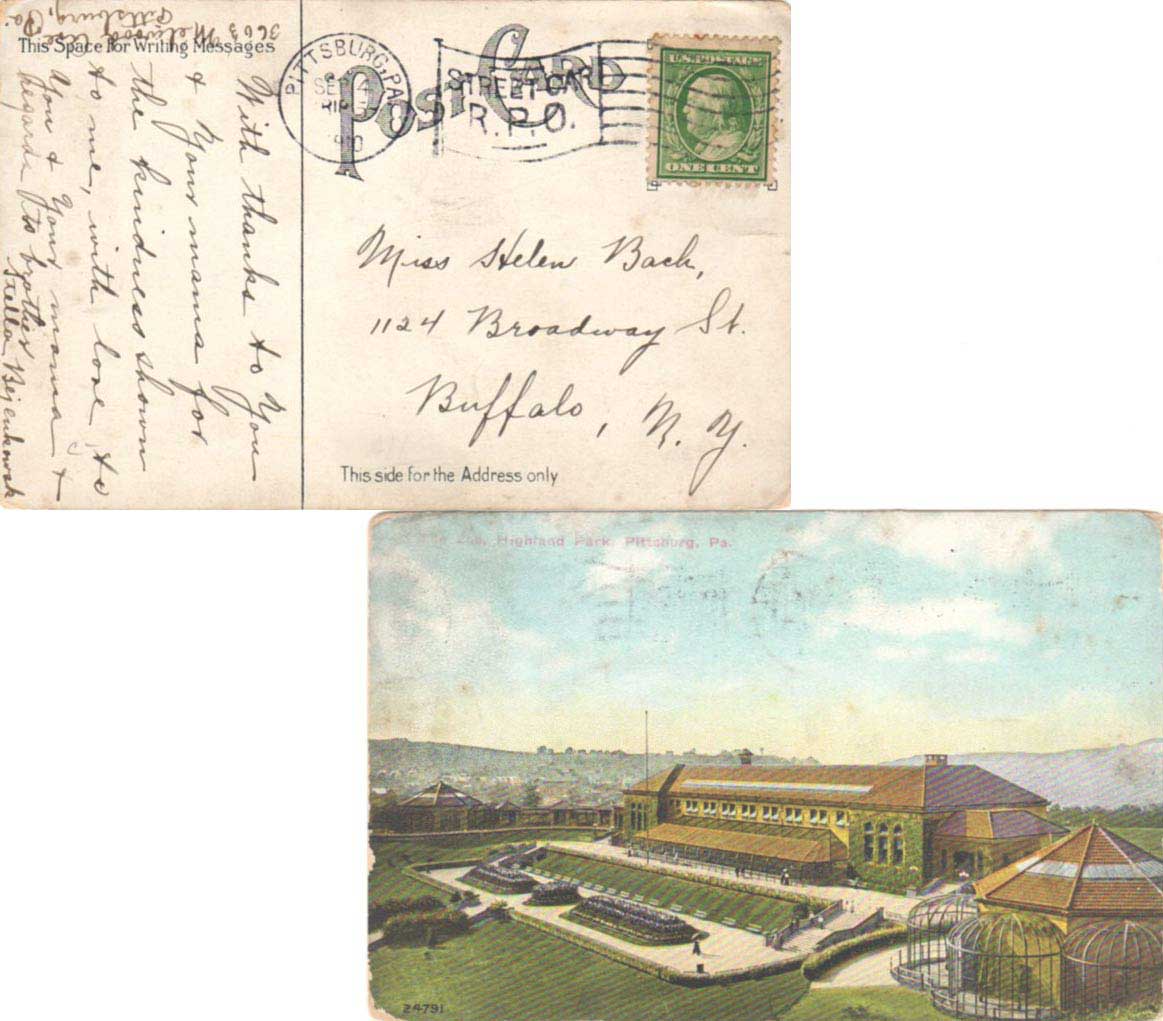 3663 Melwood Ave
Pittsburg, Pa.
This Space for Writing Messages
With thanks to you
& your mama for
the kindness shown
to me, with love to
you & your mama &
regards to brother
Stella
POST CARD
PITTSBURG, PA.
SEP 4
STREET CAR
R.P.O.
U.S. POSTAGE
ONE CENT
Miss Helen Bach,
1124 Broadway St.
Buffalo, N. Y.
This side for the Address only
Highland Park, Pittsburg, Pa.
24791